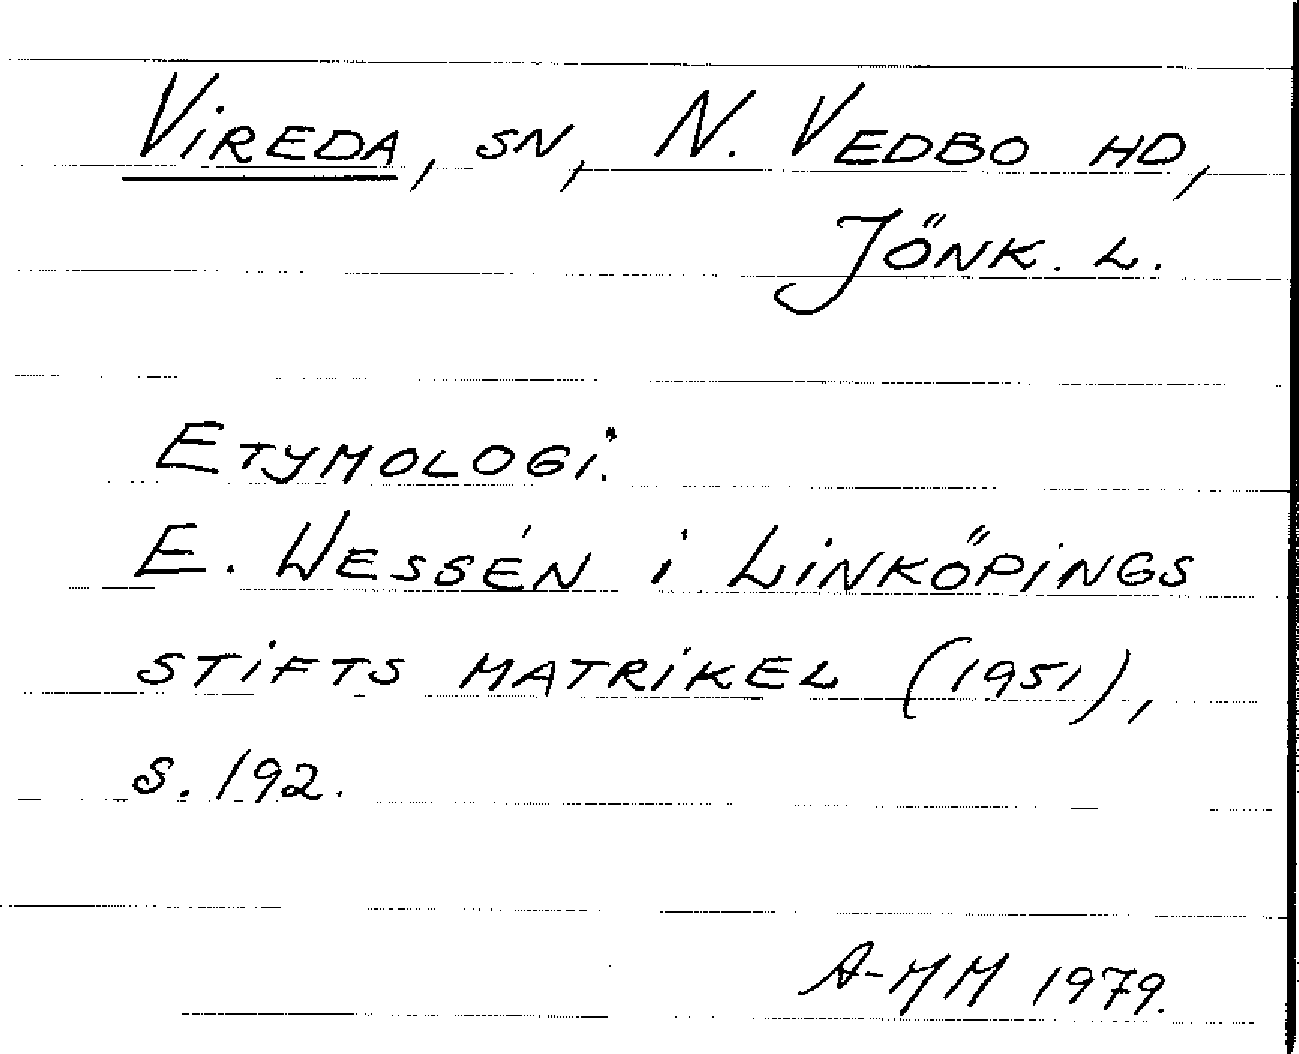 Vireda, sn, N. Vedbo hd,
Jönk. L.
Etymologi:
E. Wessén i Linköpings
stifts matrikel (1951),
s. 192.
A-MM 1979.